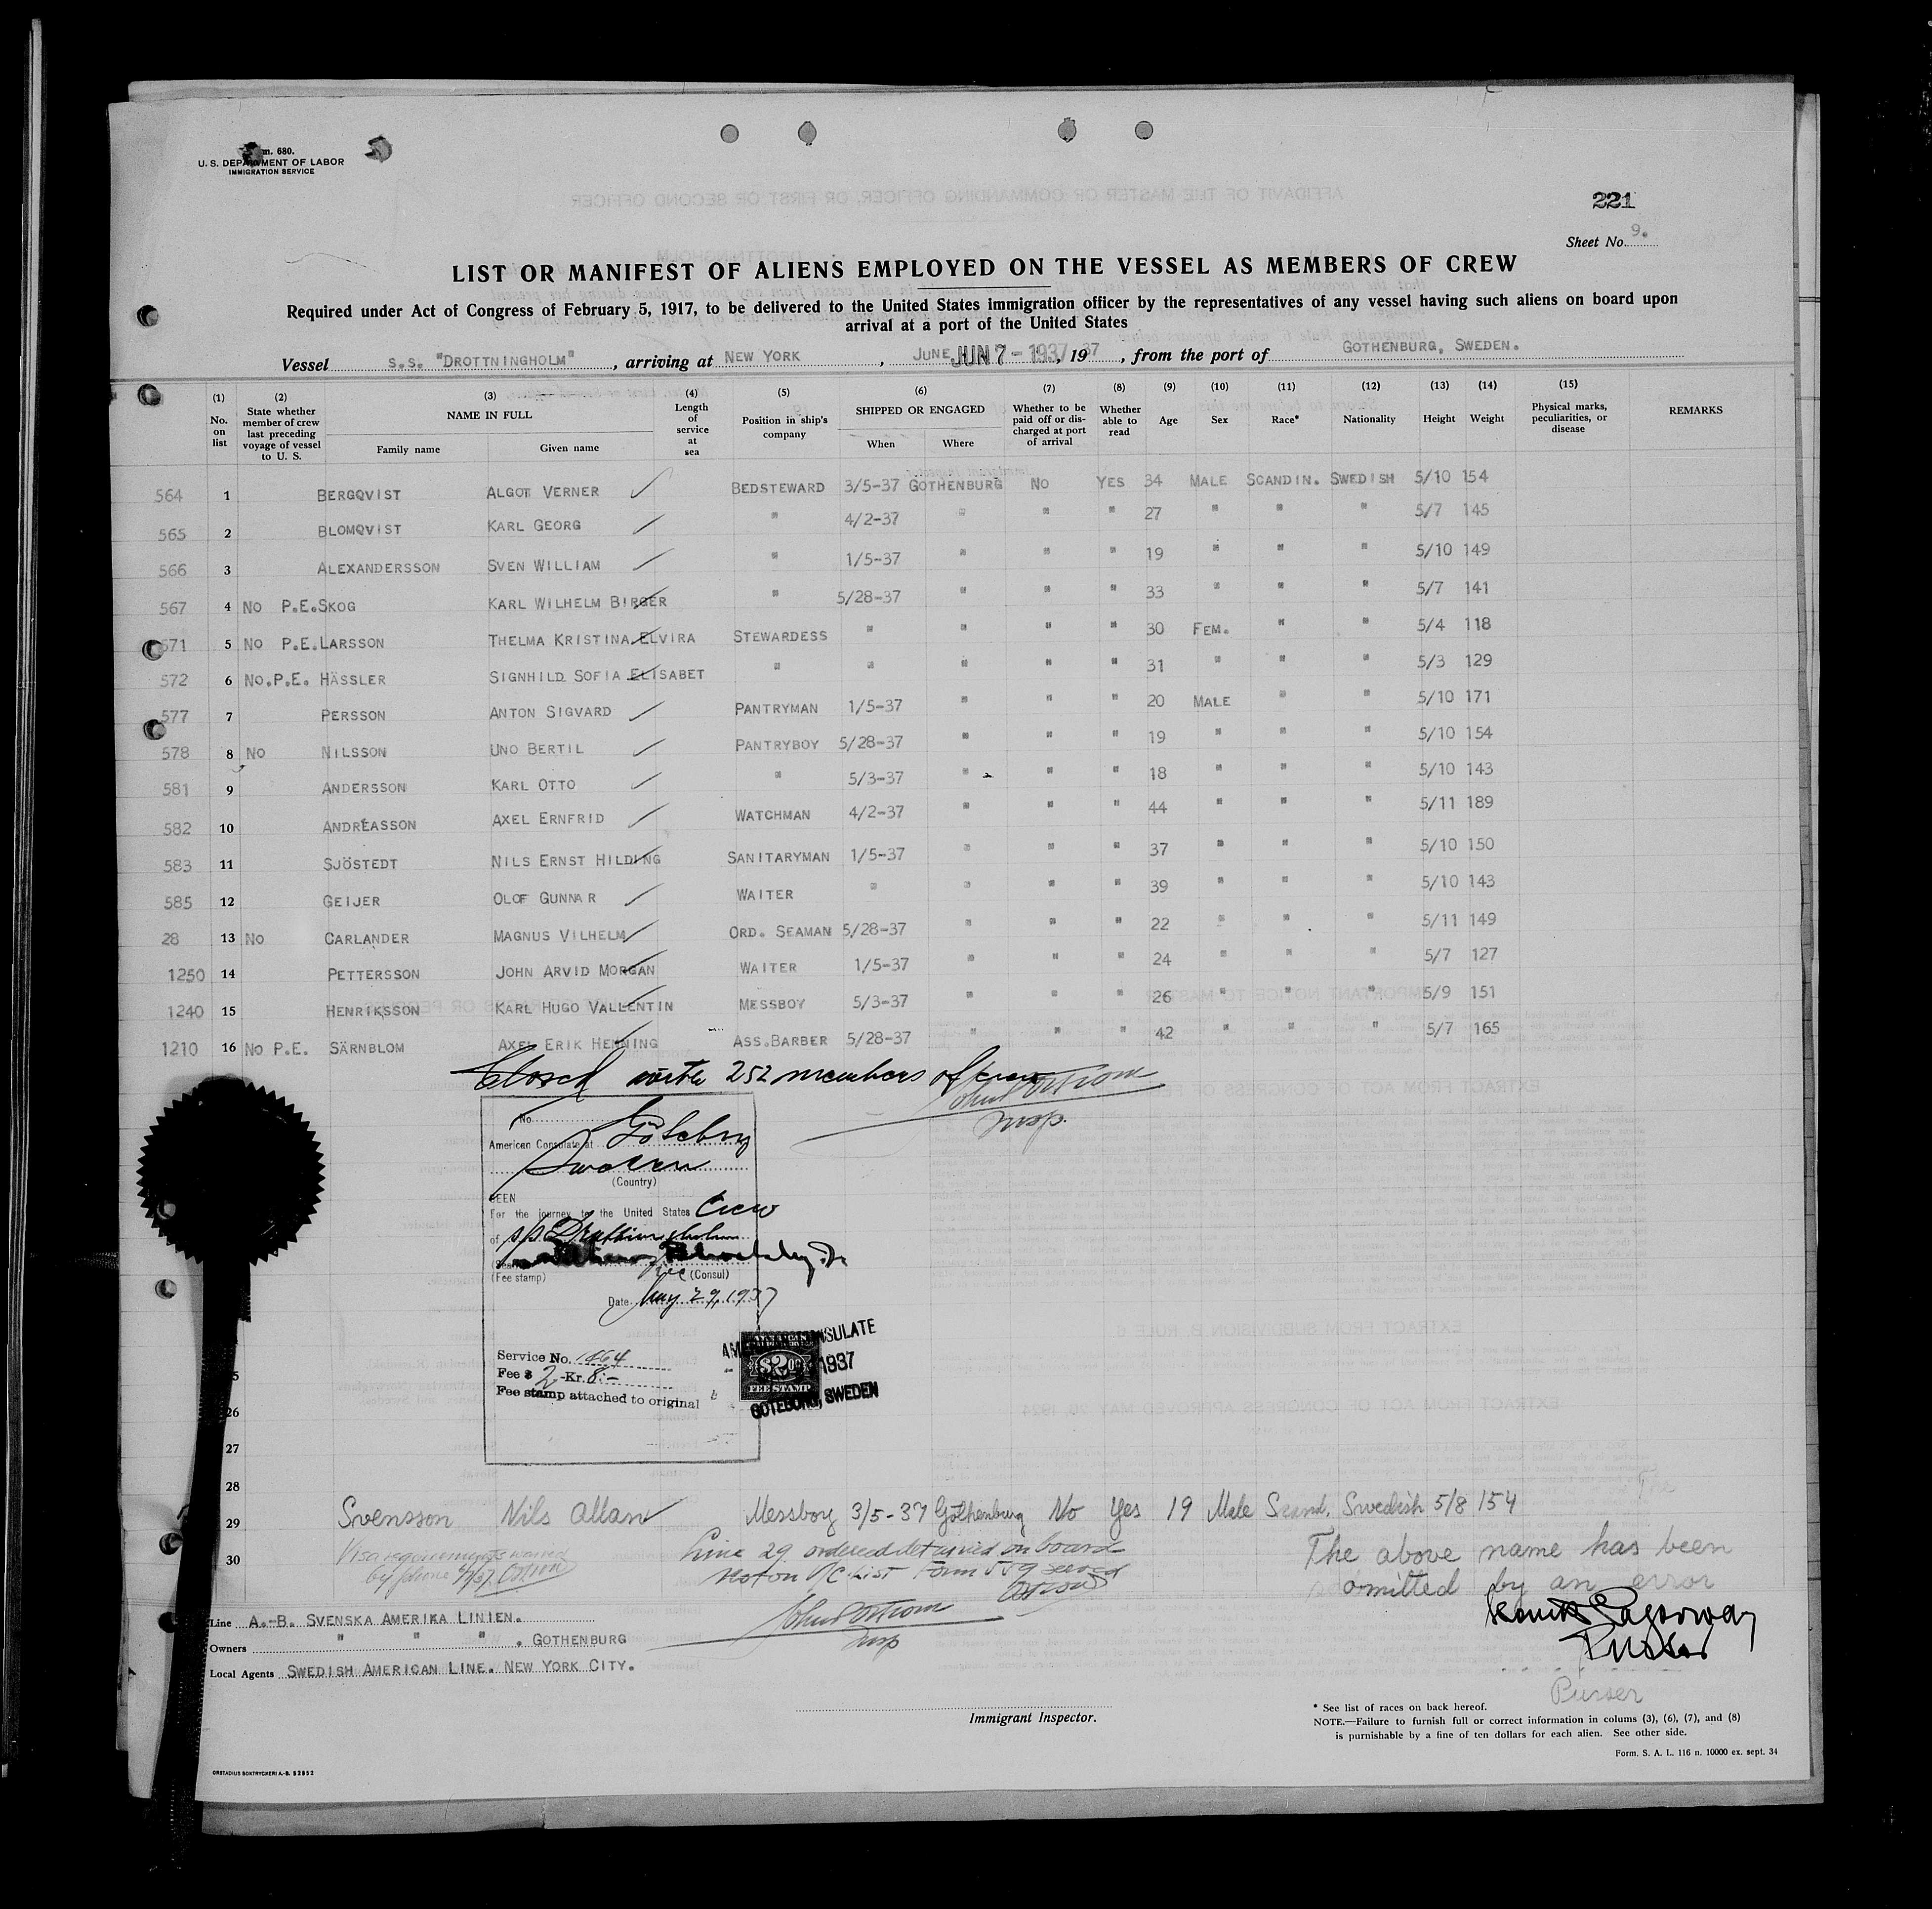 Form. 680.
U. S. DEPARTMENT OF LABOR
IMMIGRATION SERVICE
221
Sheet No. 9.
LIST OR MANIFEST OF ALIENS EMPLOYED ON THE VESSEL AS MEMBERS OF CREW
Required under Act of Congress of February 5, 1917, to be delivered to the United States immigration officer by the representatives of any vessel having such aliens on board upon
arrival at a port of the United States
Vessel S.S. "DROTTNINGHOLM", arriving at NEW YORK, JUNE JUN 7 - 1937, 1937, from the port of GOTHENBURG, SWEDEN.
(1) (2) (3) (4) (5) (6) (7) (8) (9) (10) (11) (12) (13) (14) (15)
No. on list State whether member of crew last preceding voyage of vessel to U. S. NAME IN FULL Family name Given name Length of service at sea Position in ship's company SHIPPED OR ENGAGED When Where Whether to be paid off or discharged at port of arrival Whether able to read Age Sex Race* Nationality Height Weight Physical marks, peculiarities, or disease REMARKS
564 1 BERGQVIST ALGOT VERNER BEDSTEWARD 3/5-37 GOTHENBURG NO YES 34 MALE SCANDIN. SWEDISH 5/10 154
565 2 BLOMQVIST KARL GEORG " 4/2-37 " " " 27 " " " 5/7 145
566 3 ALEXANDERSSON SVEN WILLIAM " 1/5-37 " " " 19 " " " 5/10 149
567 4 NO P.E. SKOG KARL WILHELM BIRGER " 5/28-37 " " " 33 " " " 5/7 141
571 5 NO P.E. LARSSON THELMA KRISTINA ELVIRA STEWARDESS " " " " 30 FEM. " " 5/4 118
572 6 NO.P.E. HÄSSLER SIGNHILD SOFIA ELISABET " " " " " 31 " " " 5/3 129
577 7 PERSSON ANTON SIGVARD PANTRYMAN 1/5-37 " " " 20 MALE " " 5/10 171
578 8 NO NILSSON UNO BERTIL PANTRYBOY 5/28-37 " " " 19 " " " 5/10 154
581 9 ANDERSSON KARL OTTO " 5/3-37 " " " 18 " " " 5/10 143
582 10 ANDREASSON AXEL ERNFRID WATCHMAN 4/2-37 " " " 44 " " " 5/11 189
583 11 SJÖSTEDT NILS ERNST HILDING SANITARYMAN 1/5-37 " " " 37 " " " 5/10 150
585 12 GEIJER OLOF GUNNAR WAITER " " " " 39 " " " 5/10 143
28 13 NO CARLANDER MAGNUS VILHELM ORD. SEAMAN 5/28-37 " " " 22 " " " 5/11 149
1250 14 PETTERSSON JOHN ARVID MORGAN WAITER 1/5-37 " " " 24 " " " 5/7 127
1240 15 HENRIKSSON KARL HUGO VALLENTIN MESSBOY 5/3-37 " " " 26 " " " 5/9 151
1210 16 NO P.E. SÄRNBLOM AXEL ERIK HENNING ASS.BARBER 5/28-37 " " " 42 " " " 5/7 165
Closed with 252 members of crew
Insp.
No.
American Consulate at Göteborg
Sweden
(Country)
SEEN
For the journey to the United States Crew
of s/s Drottningholm
(Fee stamp) Vice (Consul)
Date May 29, 1937
Service No. 1464
Fee $ 2 - Kr. 8:-
Fee stamp attached to original
AMERICAN CONSULATE
1937
GÖTEBORG, SWEDEN
$2.00
FEE STAMP
26
27
28
29 Svensson Nils Allan Messboy 3/5-37 Gothenburg No Yes 19 Male Scand. Swedish 5/8 154
30 Visa requirements waived
by phone
Line 29 ordered detained on board
not on V/C List Form 559 served
The above name has been
omitted by an error
Purser
Insp
Line A.-B. SVENSKA AMERIKA LINIEN.
Owners " " " . GOTHENBURG
Local Agents SWEDISH AMERICAN LINE. NEW YORK CITY.
Purser
Immigrant Inspector.
* See list of races on back hereof.
NOTE.—Failure to furnish full or correct information in colums (3), (6), (7), and (8)
is punishable by a fine of ten dollars for each alien. See other side.
Form. S. A. L. 116 n. 10000 ex. sept. 34
ORSTADIUS BOKTRYCKERI A.-B. 52852